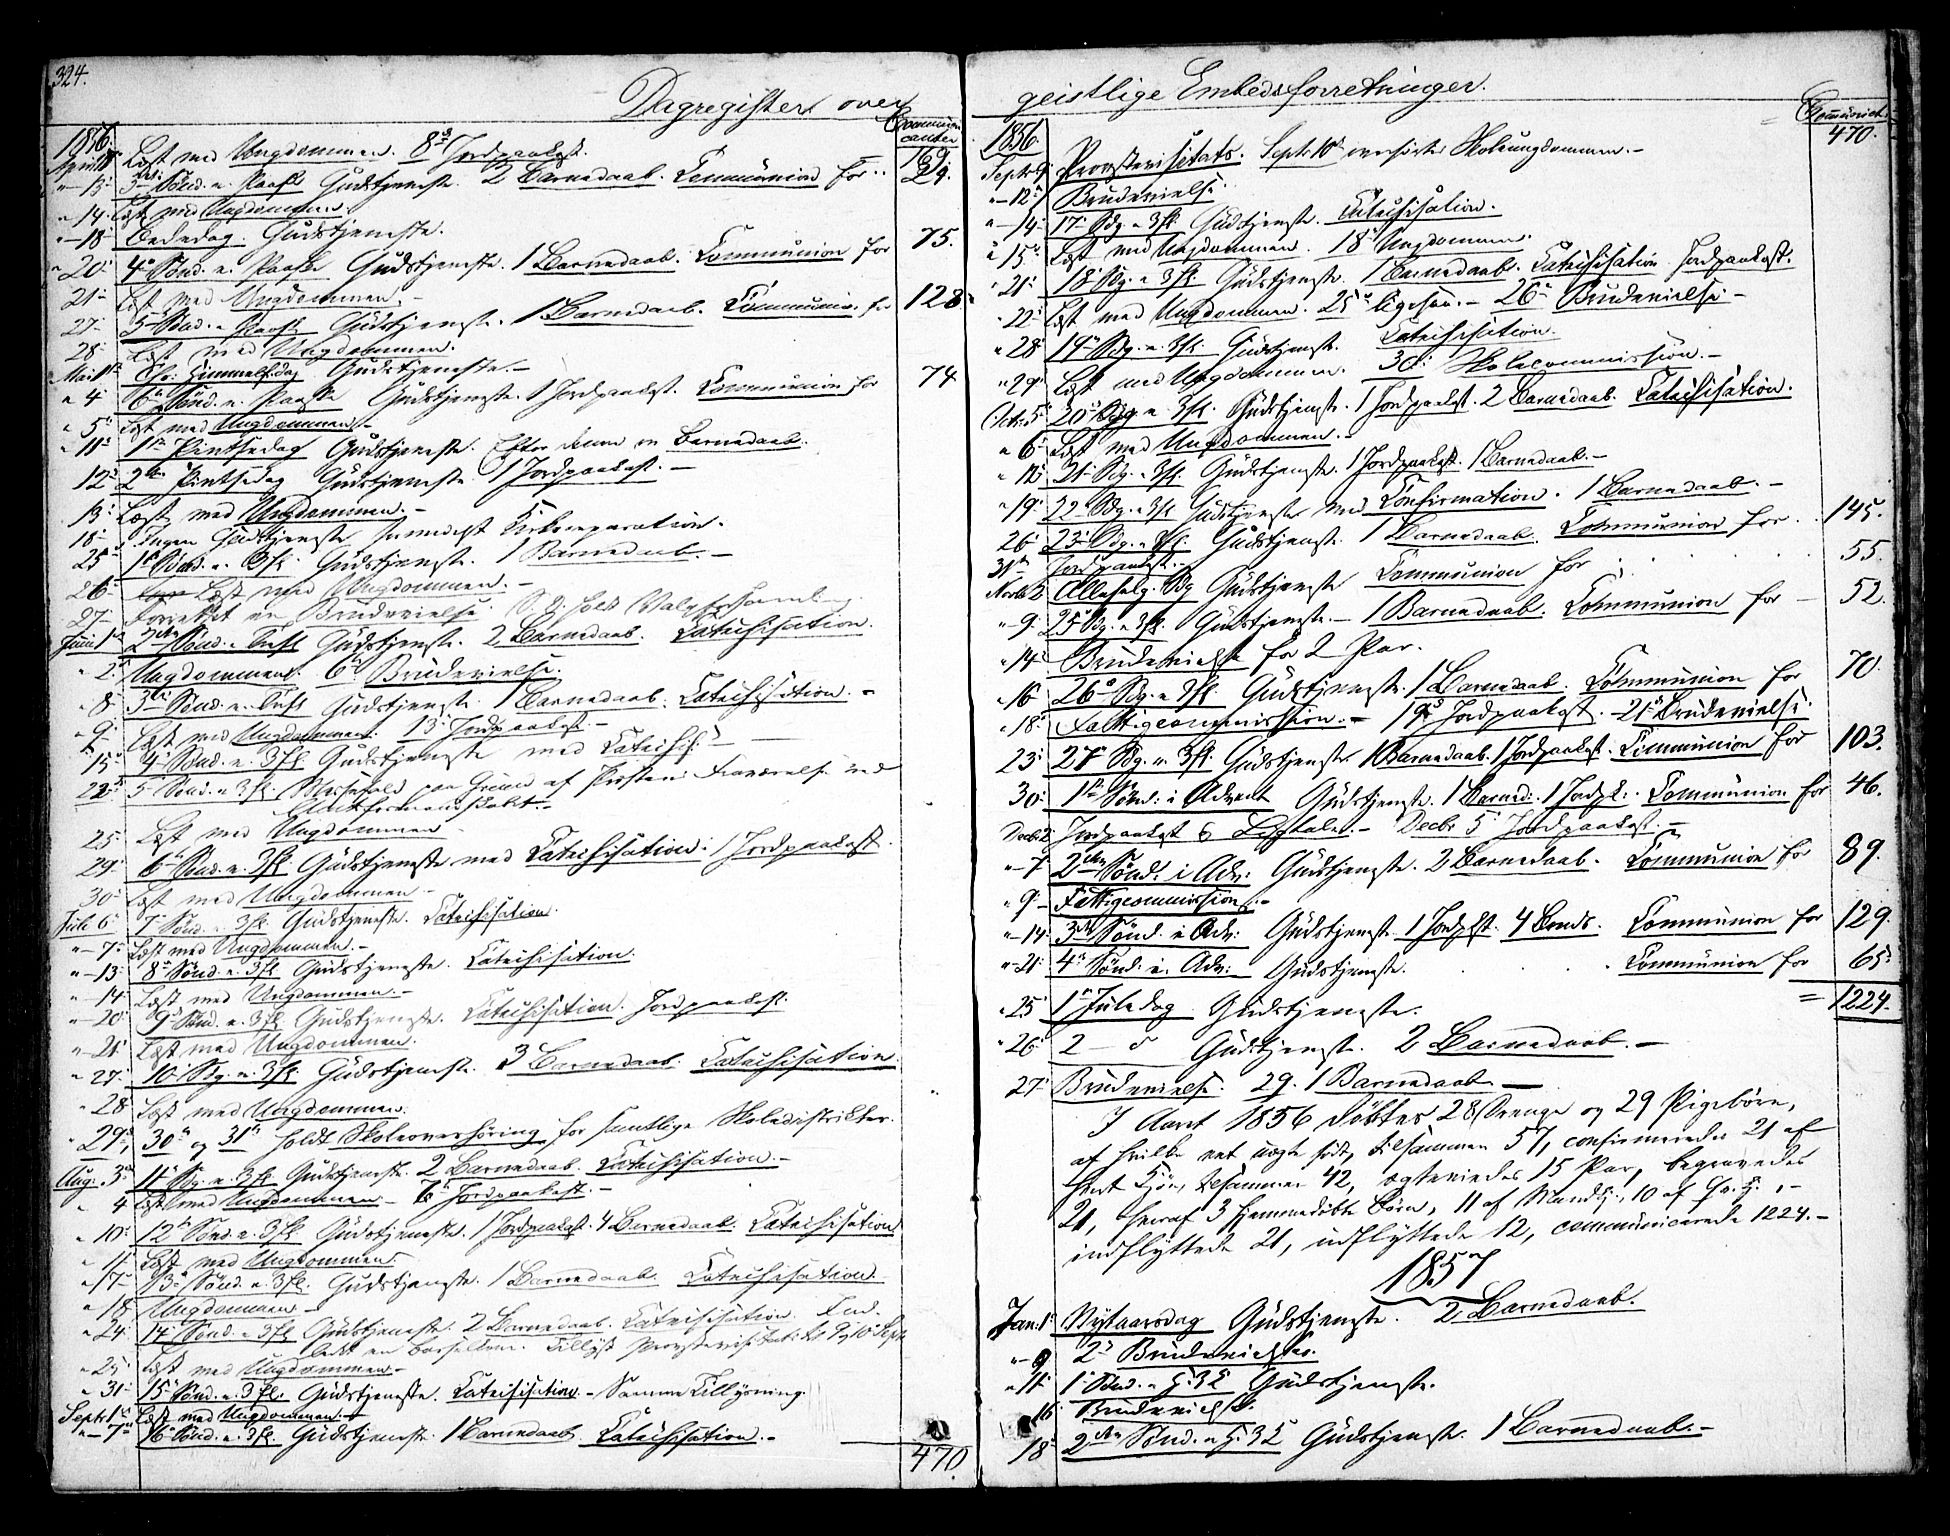 324.
Dagregister over
Communi-
canter
1856.
April 7 Læst med Ungdommen. 8de Jordpaakast.
169.
" 13 3de Sønd. e. Paaske Gudstjeneste. 2 Barnedaab. Communion for
24.
" 14. Læst med Ungdommen.
" 18 Bededag. Gudstjeneste.
" 20 4de Sønd. e. Paaske Gudstjeneste. 1 Barnedaab. Communion for 75.
21 Læst med Ungdommen. -
27 5te Sønd. e. Paaske Gudstjeneste. 1 Barnedaab. Communion for 128
28 Læst med Ungdommen.
Mai 1ste Chr. Himmelf.dag Gudstjeneste. -
" 4 6te Sønd. e. Paaske Gudstjeneste. 1 Jordpaakast. Communion for 74
" 5 Læst med Ungdommen. -
" 11 1ste Pintsedag Gudstjeneste. Efter denne en Barnedaab.
12 2den Pintsedag Gudstjeneste 1 Jordpaakast. -
13 Læst med Ungdommen. -
18 Ingen Gudstjeneste formedelst Kirkereparation.
25 1ste Sønd. e. 3fl. Gudstjeneste. 1 Barnedaab. -
26 Læst med Ungdommen. -
27 Forrettet en Brudevielse. S. D. holdt Valgforsaml.
Juni 1ste 2den Sønd. e. Tref. Gudstjeneste. 2 Barnedaab. Catechisation.
" 2 Ungdommen. 6te Brudevielse.
" 8 3die Sønd. e. Tref. Gudstjeneste. 1 Barnedaab. Catechisation. -
" 9 Læst med Ungdommen. 13de Jordpaakast. -
" 15 4de Sønd. e. 3fl. Gudstjeneste med Catechis. -
22 5te Sønd. e. 3fl. Messefald paa Grund af Præstens Fraværelse ved
Amtsformandskabet. -
25 Læst med Ungdommen
29 6te Sønd. e. 3fl. Gudstjeneste med Catechisation. 1 Jordpaakast.
30 Læst med Ungdommen -
Juli 6 7de Sønd. e. 3fl. Gudstjeneste. Catechisation.
" 7 Læst med Ungdommen. -
" 13 8de Sønd. e. 3fl Gudstjeneste. Catechisation.
" 14 Læst med Ungdommen. -
" 20 9de Sønd. e. 3fl. Gudstjeneste. Catechisation. Jordpaakast.
" 21 Læst med Ungdommen.
" 27 10de Sdg. e. 3fl. Gudstjeneste. 3 Barnedaab. Catechisation.
" 28 Læst med Ungdommen.
" 29, 30te og 31te holdt Skoleoverhøring for samtlige Skoledistrikter.
Aug. 3die 11te Sdg. e. 3fl Gudstjeneste. 2 Barnedaab. Catechisation. -
" 4 Læst med Ungdommen - 7de Jordpaakast. -
" 10 12te Sønd. e. 3fl. Gudstjeneste. 1 Jordpaakast. 4 Barnedaab. Catechisation
" 11 Læst med Ungdommen.
" 17 13de Sønd. e. 3fl. Gudstjeneste. 1 Barnedaab. Catechisation.
" 18 Ungdommen -
" 24 14de Sønd. e. 3fl Gudstjeneste. 2 Barnedaab. Catechisation. Ind-
ledet en Barselkone. Tillyst Provstevisitats til 9 og 10de Septr.
" 25 Læst med Ungdommen -
" 31 15de Sønd. e. 3fl. Gudstjeneste. Catechisation. - Samme Tillysning.
Septr. 1ste Læst med Ungdommen. -
" 7 16de Sønd. e. 3fl. Gudstjeneste. 1 Barnedaab. Catechisation. -
470
geistlige Embedsforretninger.
Communicant.
1856.
470.
Septr. 9 Provstevisitats. Septr. 10de overhørtes Skoleungdommen. -
" 12 Brudevielse.
" 14 17de Sdg. e. 3fl. Gudstjeneste. Catechisation.
" 15 Læst med Ungdommen. 18de Ungdommen.
" 21 18de Sdg. e. 3fl. Gudstjeneste. 1 Barnedaab. Catechisation. Jordpaakast.
" 22 Læst med Ungdommen. 25de ligesaa. - 26de Brudevielse -
" 28 19de Sdg. e. 3fl. Gudstjeneste. Catechisation.
" 29 Læst med Ungdommen. 30te Skolecommission. -
Octr. 5 20de Sdg. e. 3fl. Gudstjeneste. 1 Jordpaakast. 2 Barnedaab. Catechisation.
" 6 Læst med Ungdommen. -
" 12 21de Sdg. e. 3fl. Gudstjeneste. 1 Jordpaakast. 1 Barnedaab. -
" 19 22de Sdg. e. 3fl. Gudstjeneste med Confirmation. 1 Barnedaab. -
26 23de Sdg. e. 3fl. Gudstjeneste. 1 Barnedaab. Communion for 145.
31te Jordpaakast. -
Novbr. 2 Allehelg. Sdg Gudstjeneste Communion for 55.
" 9 25de Sdg. e. 3fl. Gudstjeneste. - 1 Barnedaab. Communion for - 52.
" 14 Brudevielse for 2 Par.
" 16 26de Sdg. e. 3fl. Gudstjeneste. 1 Barnedaab. Communion for 70.
" 18 Fattigcommission. - 19de Jordpaakast. - 21de Brudevielse.
23 27de Sdg. e. 3fl. Gudstjeneste 1 Barnedaab. 1 Jordpaakast. Communion for 103.
30 1ste Sønd. i Advent Gudstjeneste. 1 Barned. 1 Jordpk. Communion for 46.
Decbr. 2 Jordpaakast & Ligtale. - Decbr 5 Jordpaakast. -
" 7 2den Sønd. i Adv. Gudstjeneste. 2 Barnedaab. Communion for 89.
" 9 Fattigcommission. -
" 14 3die Sønd. i Adv. Gudstjeneste. 1 Jordpkst. 4 Barnd. Communion for 129.
" 21 4de Sønd. i. Adv. Gudstjeneste. Communion for 65
= 1224.
" 25 1ste Juledag Gudstjeneste.
" 26 2 - d Gudstjeneste. 2 Barnedaab. -
27 Brudevielse. 29. 1 Barnedaab -
I Aaret 1856 døbtes 28 Drenge og 29 Pigebørn,
af hvilke eet uægte født, tilsammen 57, confirmerede 21 af
hvert Kjøn, tilsammen 42, ægteviedes 15 Par, begravedes
21, hvoraf 3 hjemmedøbte Børn, 11 af Mandkj., 10 af Qv.kj., -
indflyttede 21, udflyttede 12, communicerede 1224. -
1857
Jan. 1 Nytaarsdag Gudstjeneste. 2 Barnedaab.
" 9 2de Brudevielser.
" 11 1ste Sønd. e. H. 3 K Gudstjeneste.
16 Brudevielse.
18 2den Sønd. e. H. 3 K Gudstjeneste. 1 Barnedaab. -